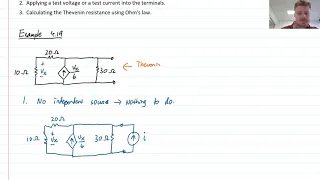 2. Applying a test voltage or a test current into the terminals.
3. Calculating the Thevenin resistance using Ohm's law.
Example 4.19
20Ω
10Ω + Vx − Vx/6 30Ω ← Thevenin
1. No independent source → Nothing to do.
20Ω
10Ω + Vx − Vx/6 30Ω i